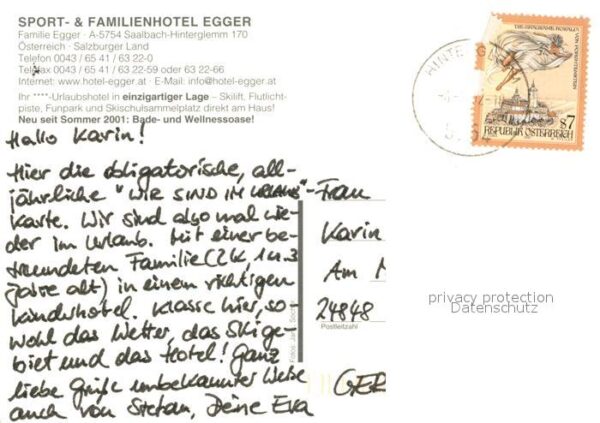 SPORT- & FAMILIENHOTEL EGGER
Familie Egger · A-5754 Saalbach-Hinterglemm 170
Österreich · Salzburger Land
Telefon 0043 / 65 41 / 63 22-0
Telefax 0043 / 65 41 / 63 22-59 oder 63 22-66
Internet: www.hotel-egger.at · E-Mail: info@hotel-egger.at
Ihr ****-Urlaubshotel in einzigartiger Lage – Skilift, Flutlicht-
piste, Funpark und Skischulsammelplatz direkt am Haus!
Neu seit Sommer 2001: Bade- und Wellnessoase!
Hallo Karin!
Hier die obligatorische, all-
jährliche "WIR SIND IM URLAUB"-
Karte. Wir sind also mal wie-
der im Urlaub. Mit einer be-
freundeten Familie (2K, 1 u. 3
Jahre alt) in einem richtigen
Kinderhotel. Klasse hier, so-
wohl das Wetter, das Skige-
biet und das Hotel! Ganz
liebe Grüße unbekannter Weise
auch von Stefan, Deine Eva
Frau
Karin
Am
24848
Postleitzahl
GER
VON FORCHTENSTEIN
S7
REPUBLIK ÖSTERREICH
privacy protection
Datenschutz